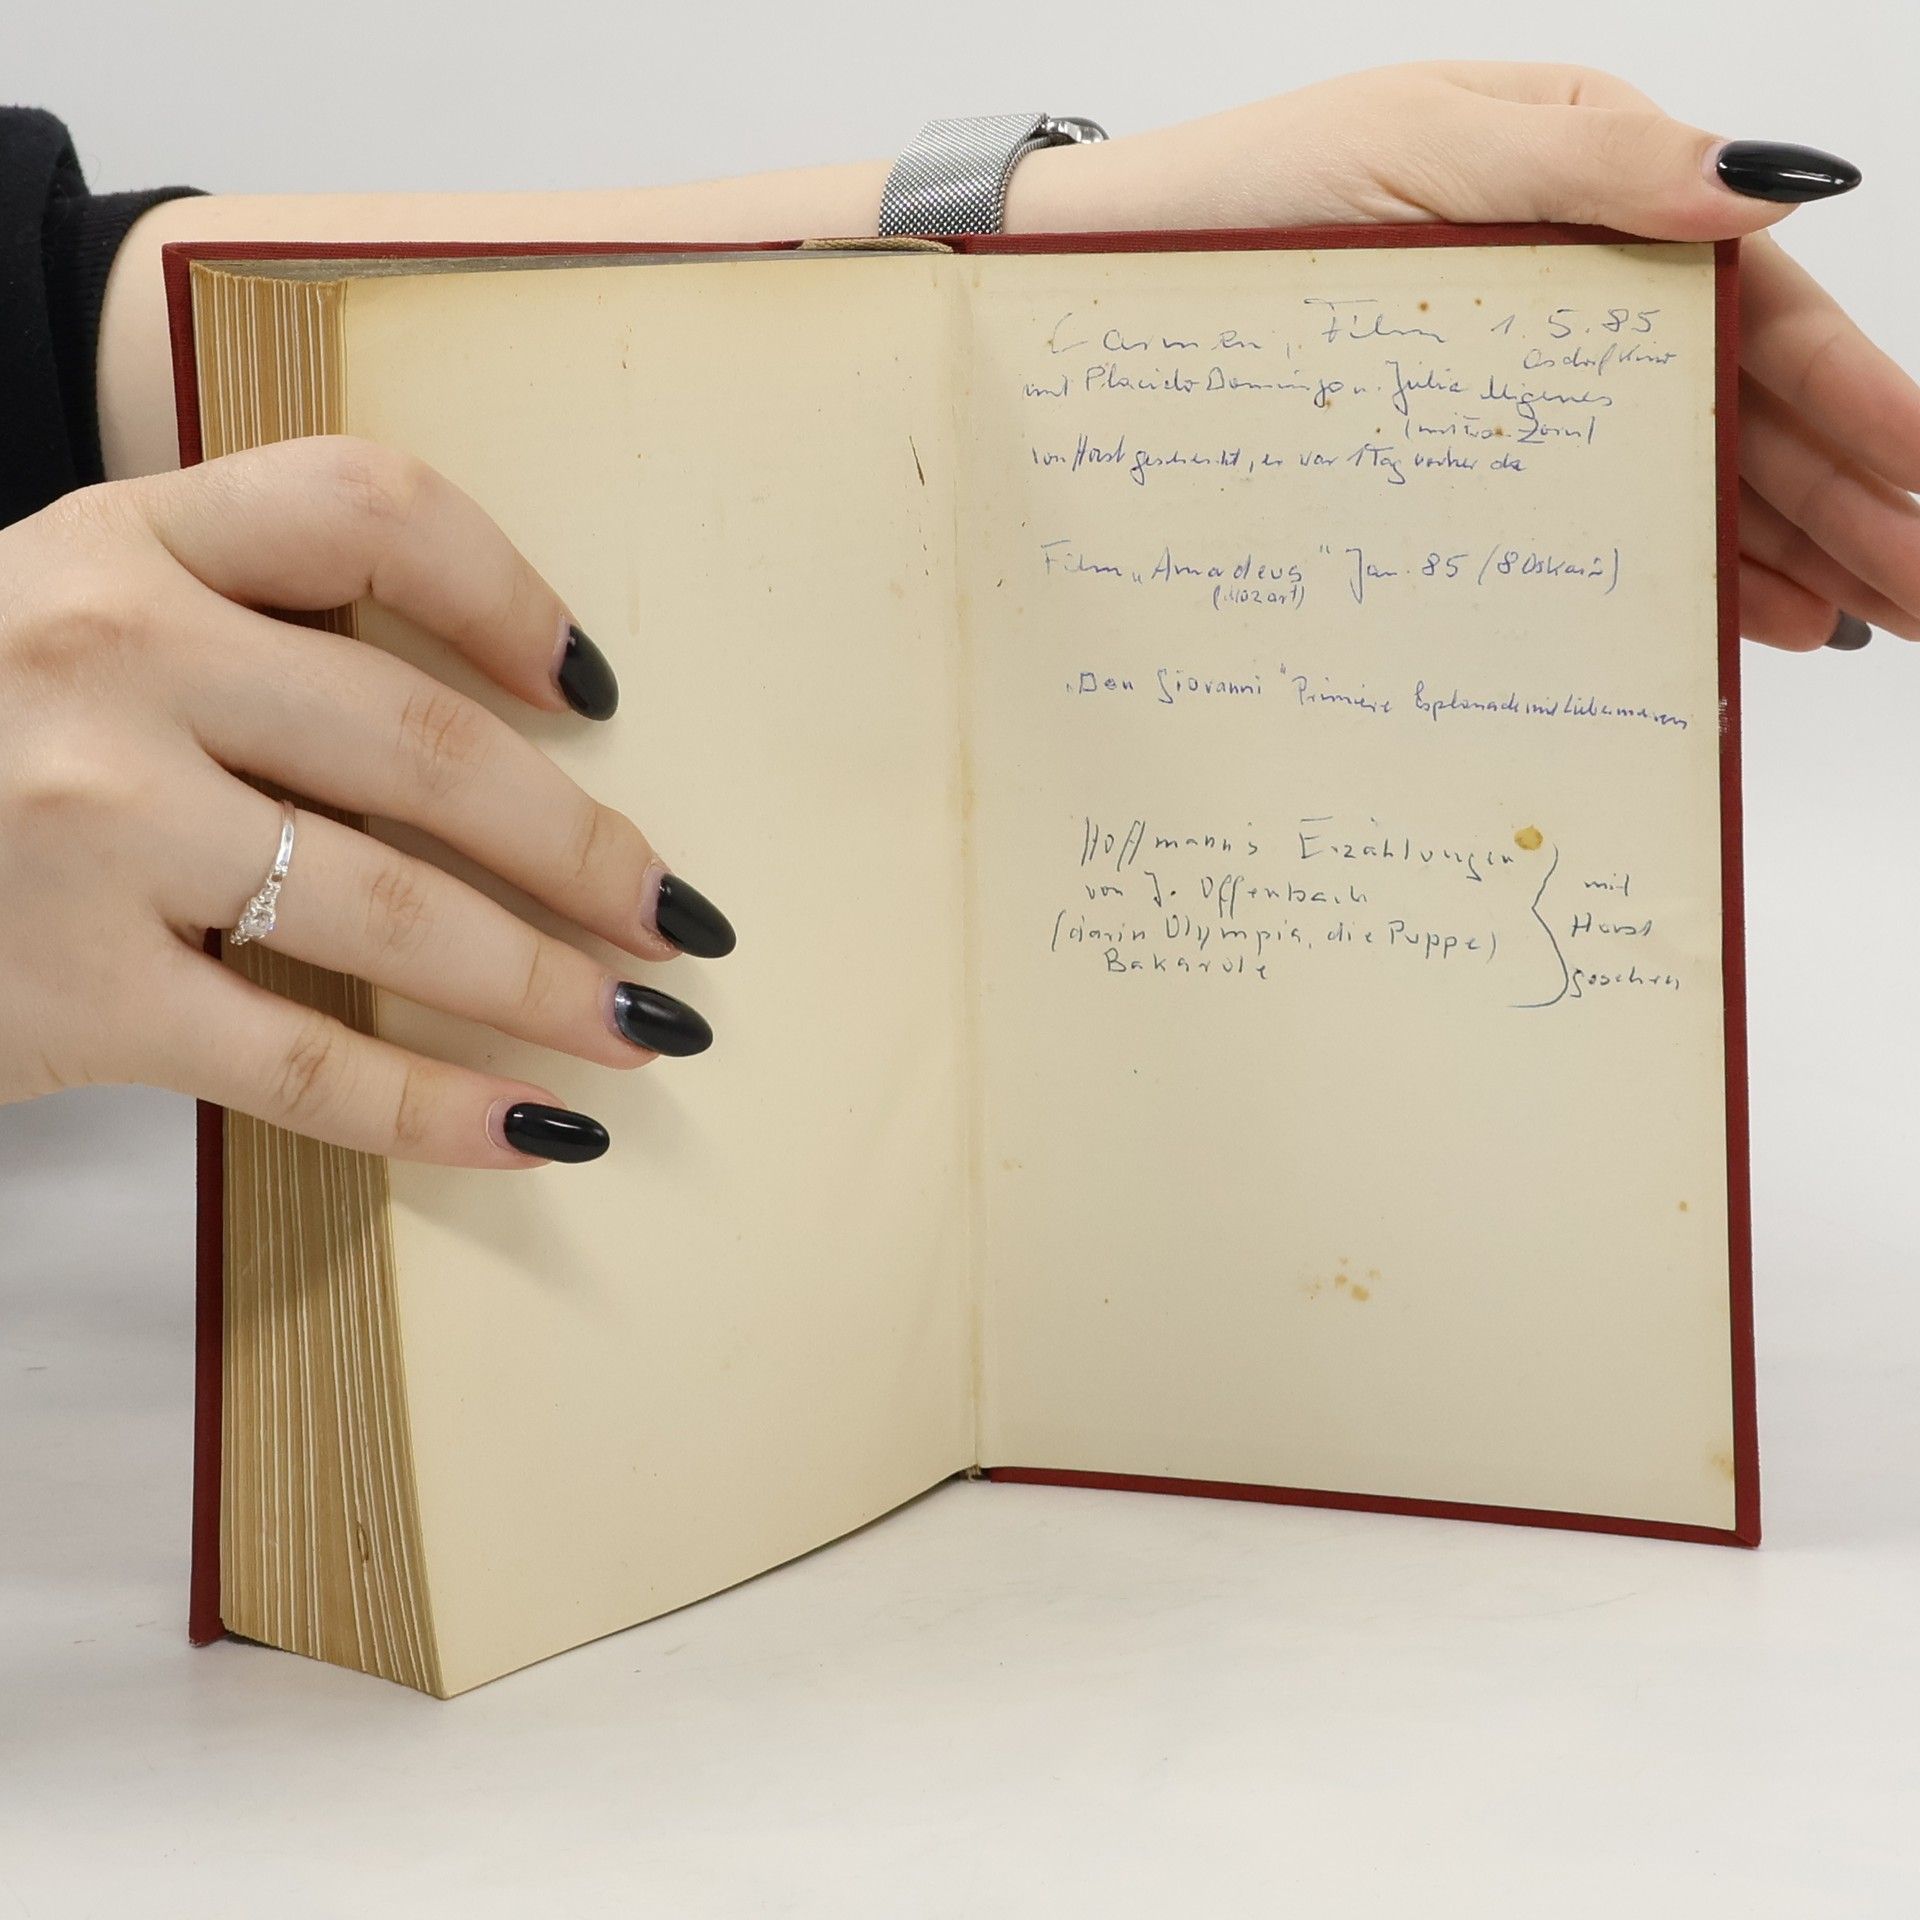 Carmen, Film 1.5.85
Osdorf Kino
mit Placido Domingo u. Julia Migenes
(mit Zorn)
von Horst geschenkt, er war 1 Tag vorher da
Film „Amadeus" Jan. 85 (8 Oskars)
(Mozart)
„Don Giovanni" Primiere Esplanade mit Liebermann
Hoffmann's Erzählungen
von J. Offenbach
(darin Olympia, die Puppe)
Bakarole
mit
Horst
gesehen